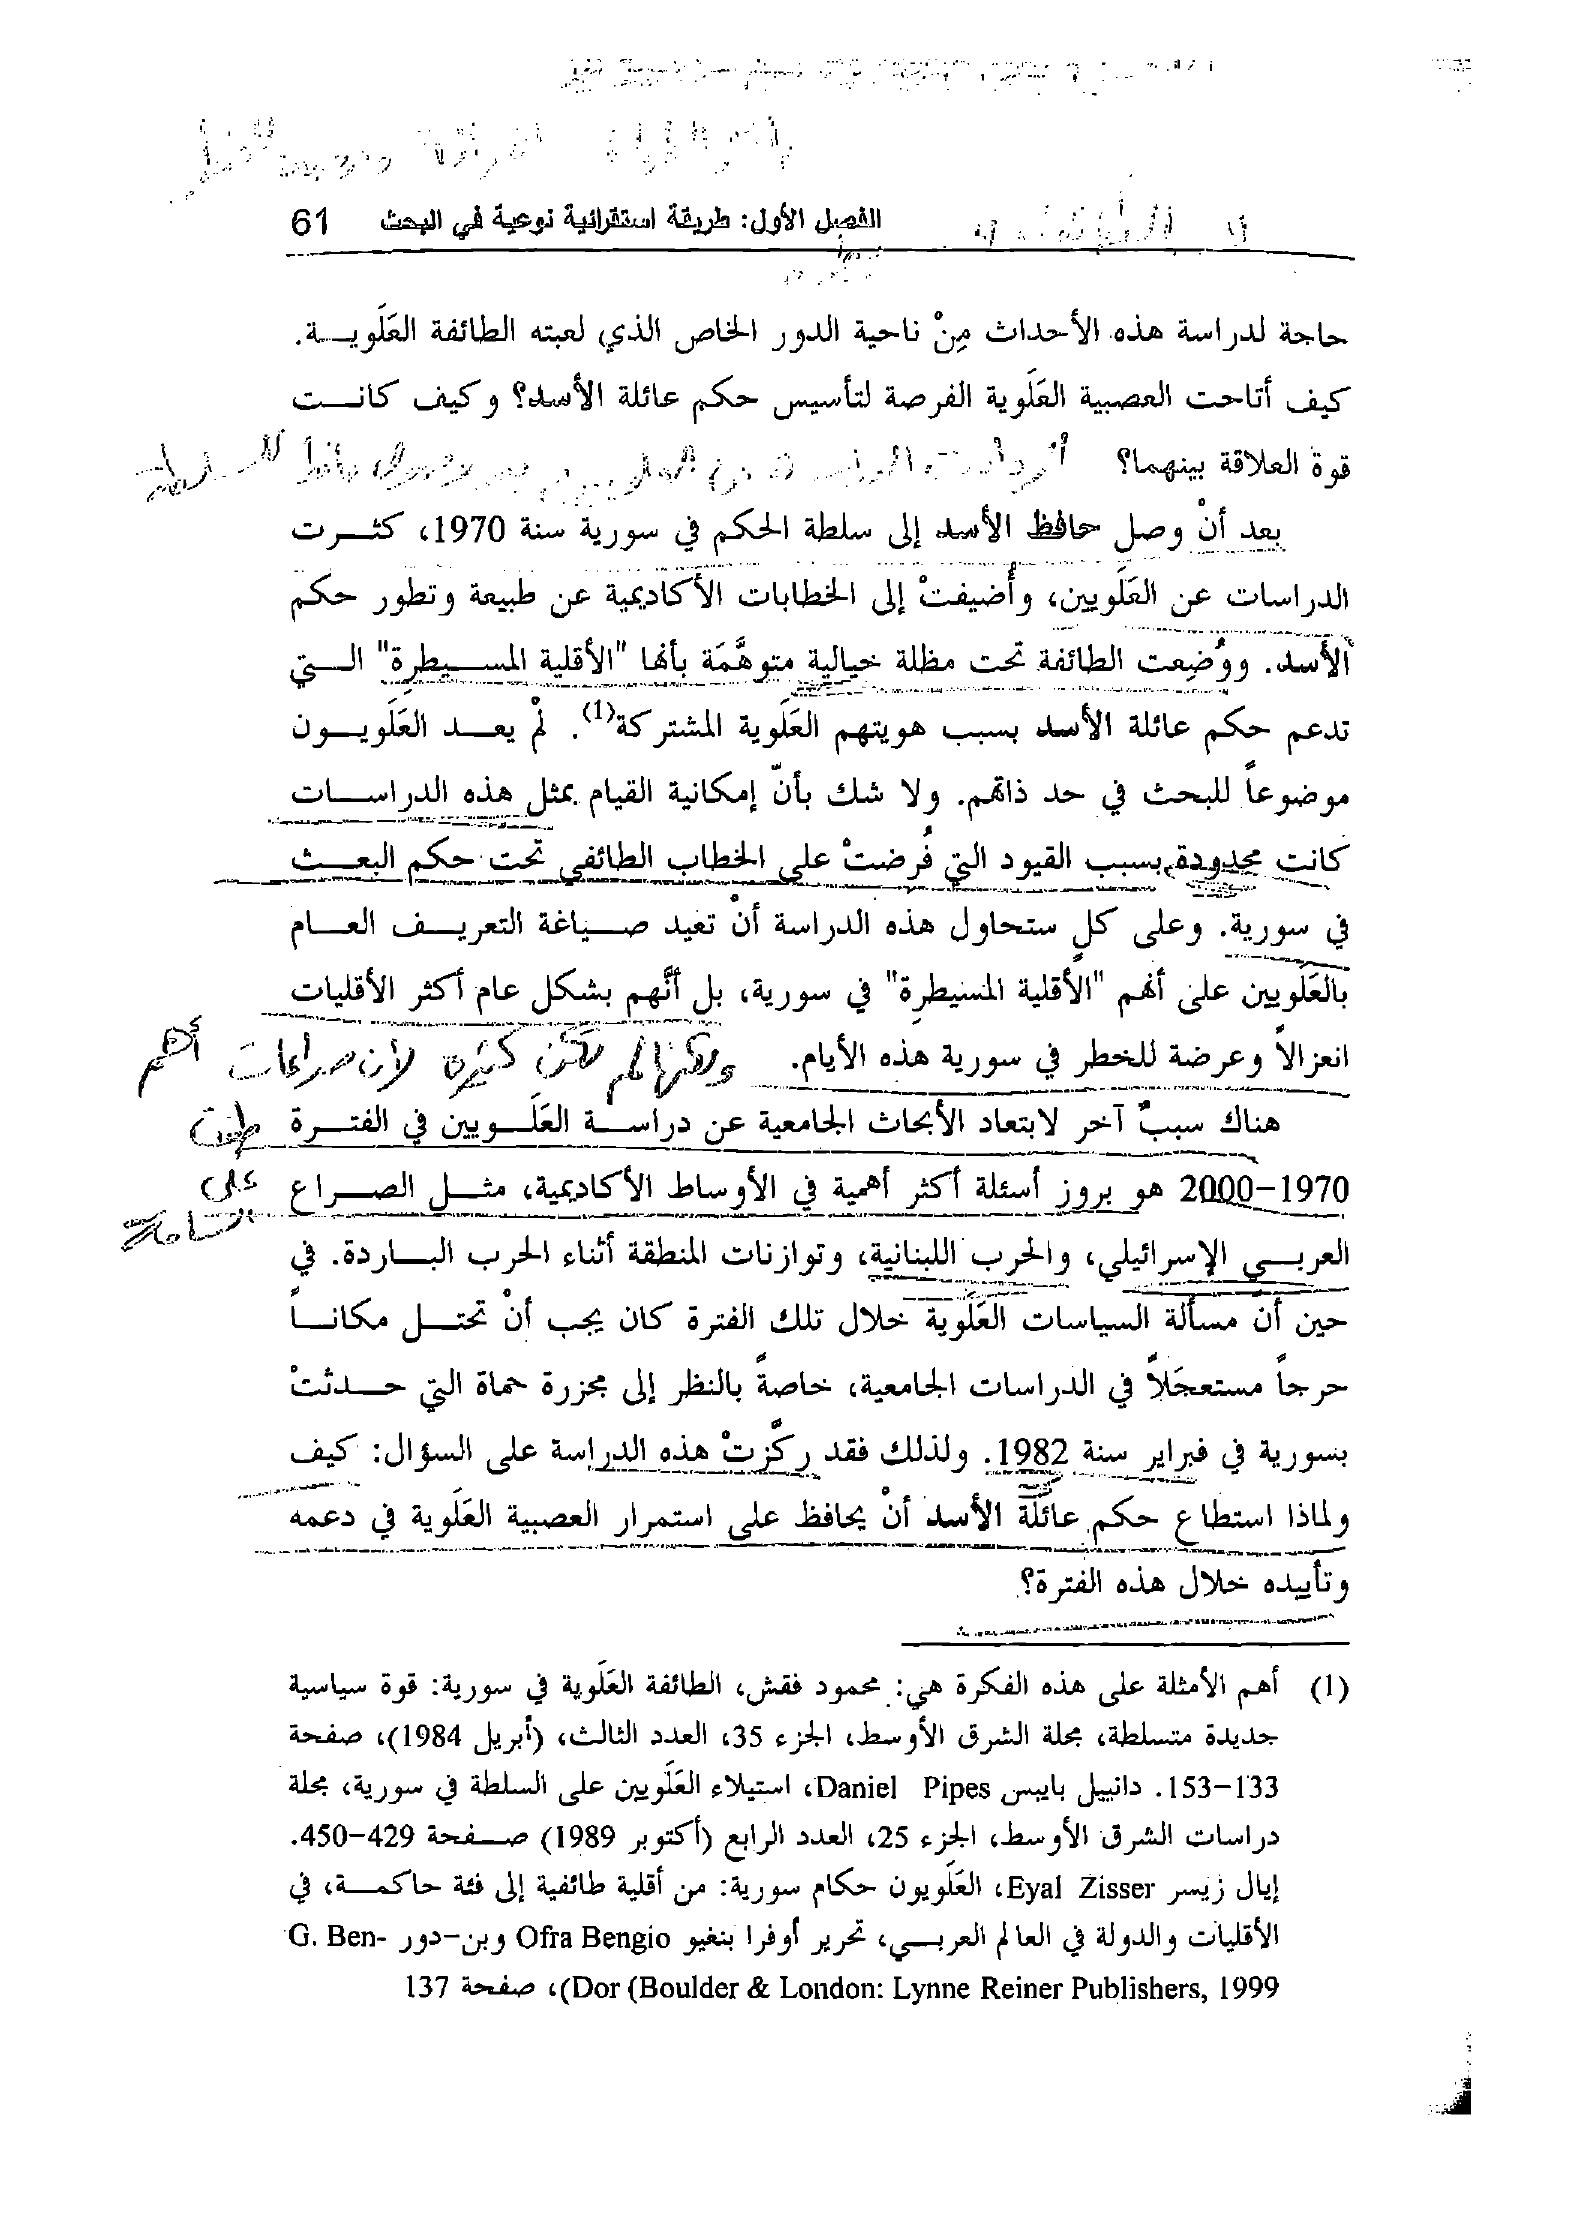 الفصل الأول: طريقة استقرائية نوعية في البحث 61
حاجة لدراسة هذه الأحداث مِنْ ناحية الدور الخاص الذي لعبته الطائفة العَلَويــة.
كيف أتاحت العصبية العَلَوية الفرصة لتأسيس حكم عائلة الأسد؟ وكيف كانـــت
قوة العلاقة بينهما؟
بعد أنْ وصل حافظ الأسد إلى سلطة الحكم في سورية سنة 1970، كثـــرت
الدراسات عن العَلَويين، وأُضيفتْ إلى الخطابات الأكاديمية عن طبيعة وتطور حكم
الأسد. ووُضِعت الطائفة تحت مظلة خيالية متوهَّمَة بأنها "الأقلية المســيطرِة" الــتي
تدعم حكم عائلة الأسد بسبب هويتهم العَلَوية المشتركة(1). لمْ يعــد العَلَويــون
موضوعاً للبحث في حد ذاتهم. ولا شك بأنّ إمكانية القيام بمثل هذه الدراســات
كانت محدودة بسبب القيود التي فُرضتْ على الخطاب الطائفي تحت حكم البعــث
في سورية. وعلى كلٍ ستحاول هذه الدراسة أنْ تعيد صــياغة التعريــف العــام
بالعَلَويين على أنهم "الأقلية المسيطرِة" في سورية، بل أنَّهم بشكل عام أكثر الأقليات
انعزالاً وعرضة للخطر في سورية هذه الأيام.
ولكنها لم تكن كثيرة لأن صراعات أهم
هناك سببٌ آخر لابتعاد الأبحاث الجامعية عن دراســة العَلَــويين في الفتــرة
طغت
1970-2000 هو بروز أسئلة أكثر أهمية في الأوساط الأكاديمية، مثــل الصــراع
على
الساحة
العربــي الإسرائيلي، والحرب اللبنانية، وتوازنات المنطقة أثناء الحرب البــاردة. في
حين أنّ مسألة السياسات العَلَوية خلال تلك الفترة كان يجب أنْ تحتــل مكانــاً
حرجاً مستعجَلاً في الدراسات الجامعية، خاصةً بالنظر إلى مجزرة حماة التي حــدثتْ
بسورية في فبراير سنة 1982. ولذلك فقد ركَّزتْ هذه الدراسة على السؤال: كيف
ولماذا استطاع حكم عائلة الأسد أنْ يحافظ على استمرار العصبية العَلَوية في دعمه
وتأييده خلال هذه الفترة؟
(1) أهم الأمثلة على هذه الفكرة هي: محمود فقش، الطائفة العَلَوية في سورية: قوة سياسية
جديدة متسلطة، مجلة الشرق الأوسط، الجزء 35، العدد الثالث، (أبريل 1984)، صفحة
133-153. دانييل بايبس Daniel Pipes، استيلاء العَلَويين على السلطة في سورية، مجلة
دراسات الشرق الأوسط، الجزء 25، العدد الرابع (أكتوبر 1989) صــفحة 429-450.
إيال زيسر Eyal Zisser، العَلَويون حكام سورية: من أقلية طائفية إلى فئة حاكمــة، في
الأقليات والدولة في العالم العربــي، تحرير أوفرا بنغيو Ofra Bengio وبن-دور G. Ben-
Dor (Boulder & London: Lynne Reiner Publishers, 1999)، صفحة 137